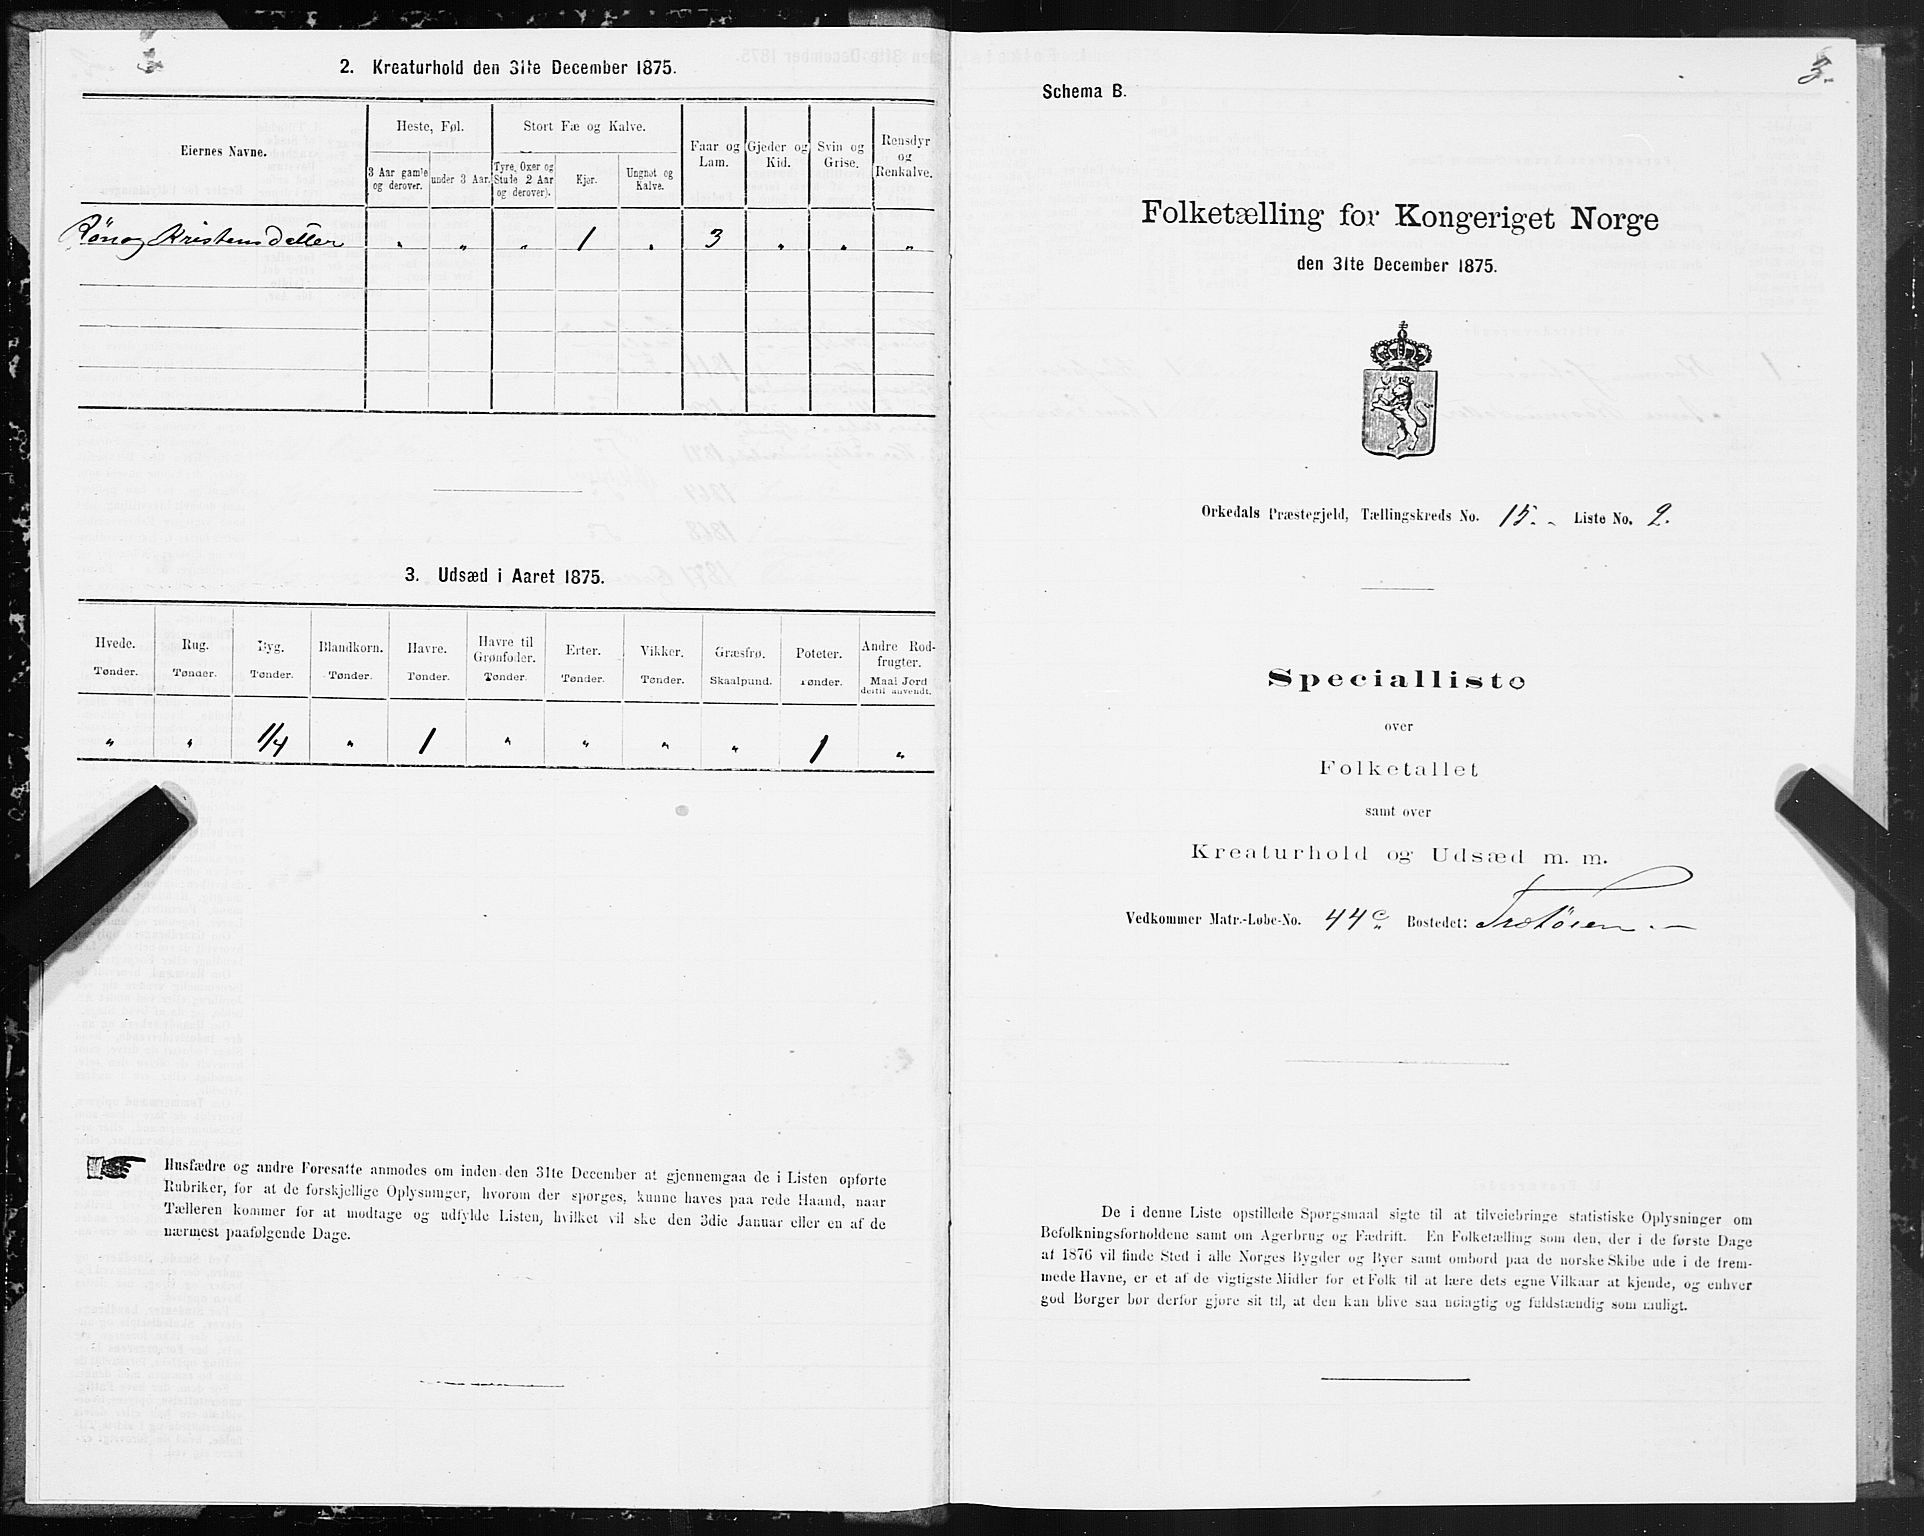 2. Kreaturhold den 31te December 1875.
Eiernes Navne.
Heste, Føl.
Stort Fæ og Kalve.
Faar og Lam.
Gjeder og Kid.
Svin og Grise.
Rensdyr og Renkalve.
3 Aar gamle og derover.
under 3 Aar.
Tyre, Oxer og Stude 2 Aar og derover).
Kjør.
Ungnøt og Kalve.
Kristensdatter " " " 1 " 3 " " "
3. Udsæd i Aaret 1875.
Hvede. Rug. Byg. Blandkorn. Havre. Havre til Grønfoder. Erter. Vikker. Græsfrø. Poteter. Andre Rodfrugter.
Tønder. Tønder. Tønder. Tønder. Tønder. Tønder. Tønder. Tønder. Skaalpund. Tønder. Maal Jord dertil anvendt.
" " 1/4 " 1 " " " " 1 "
Husfædre og andre Foresatte anmodes om inden den 31te December at gjennemgaa de i Listen opførte
Rubriker, for at de forskjellige Oplysninger, hvorom der spørges, kunne haves paa rede Haand, naar
Tælleren kommer for at modtage og udfylde Listen, hvilket vil ske den 3die Januar eller en af de
nærmest paafølgende Dage.
3.
Schema B.
Folketælling for Kongeriget Norge
den 31te December 1875.
Orkedals Præstegjeld, Tællingskreds No. 15. Liste No. 2.
Specialliste
over
Folketallet
samt over
Kreaturhold og Udsæd m. m.
Vedkommer Matr.-Løbe-No. 44c Bostedet:
De i denne Liste opstillede Spørgsmaal sigte til at tilveiebringe statistiske Oplysninger om
Befolkningsforholdene samt om Agerbrug og Fædrift. En Folketælling som den, der i de første Dage
af 1876 vil finde Sted i alle Norges Bygder og Byer samt ombord paa de norske Skibe ude i de frem-
mede Havne, er et af de vigtigste Midler for et Folk til at lære dets egne Vilkaar at kjende, og enhver
god Borger bør derfor gjøre sit til, at den kan blive saa nøiagtig og fuldstændig som muligt.